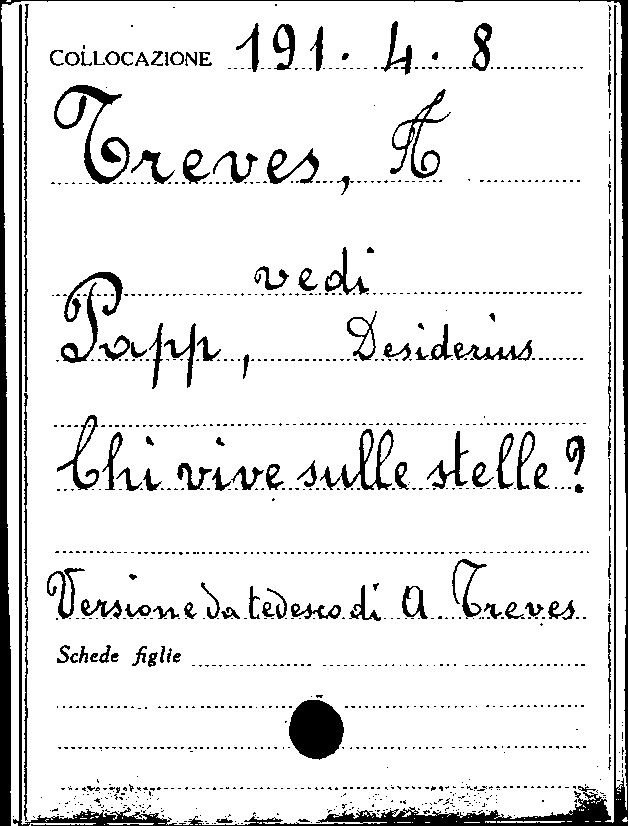 COLLOCAZIONE 191. 4. 8
Treves, A
vedi
Papp, Desiderius
Chi vive sulle stelle?
Versione da tedesco di A Treves
Schede figlie